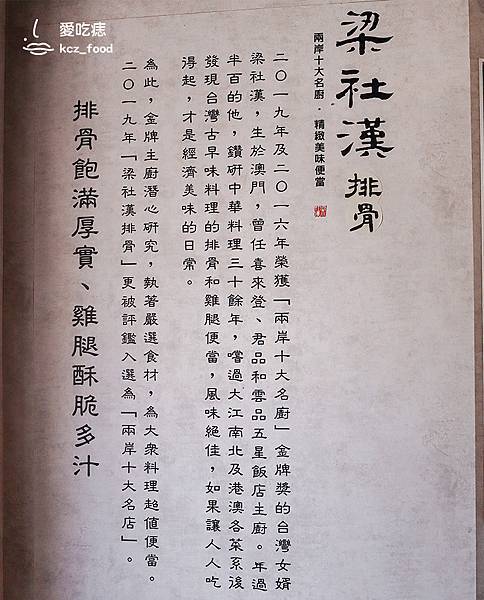 愛吃痣
kcz_food
梁社漢排骨
兩岸十大名廚．精緻美味便當
二〇一九年及二〇一六年榮獲「兩岸十大名廚」金牌獎的台灣女婿
梁社漢，生於澳門，曾任喜來登、君品和雲品五星飯店主廚。年過
半百的他，鑽研中華料理三十餘年，嚐過大江南北及港澳各菜系後
發現台灣古早味料理的排骨和雞腿便當，風味絕佳，如果讓人人吃
得起，才是經濟美味的日常。
為此，金牌主廚潛心研究，執著嚴選食材，為大眾料理超值便當。
二〇一九年「梁社漢排骨」更被評鑑入選為「兩岸十大名店」。
排骨飽滿厚實、雞腿酥脆多汁